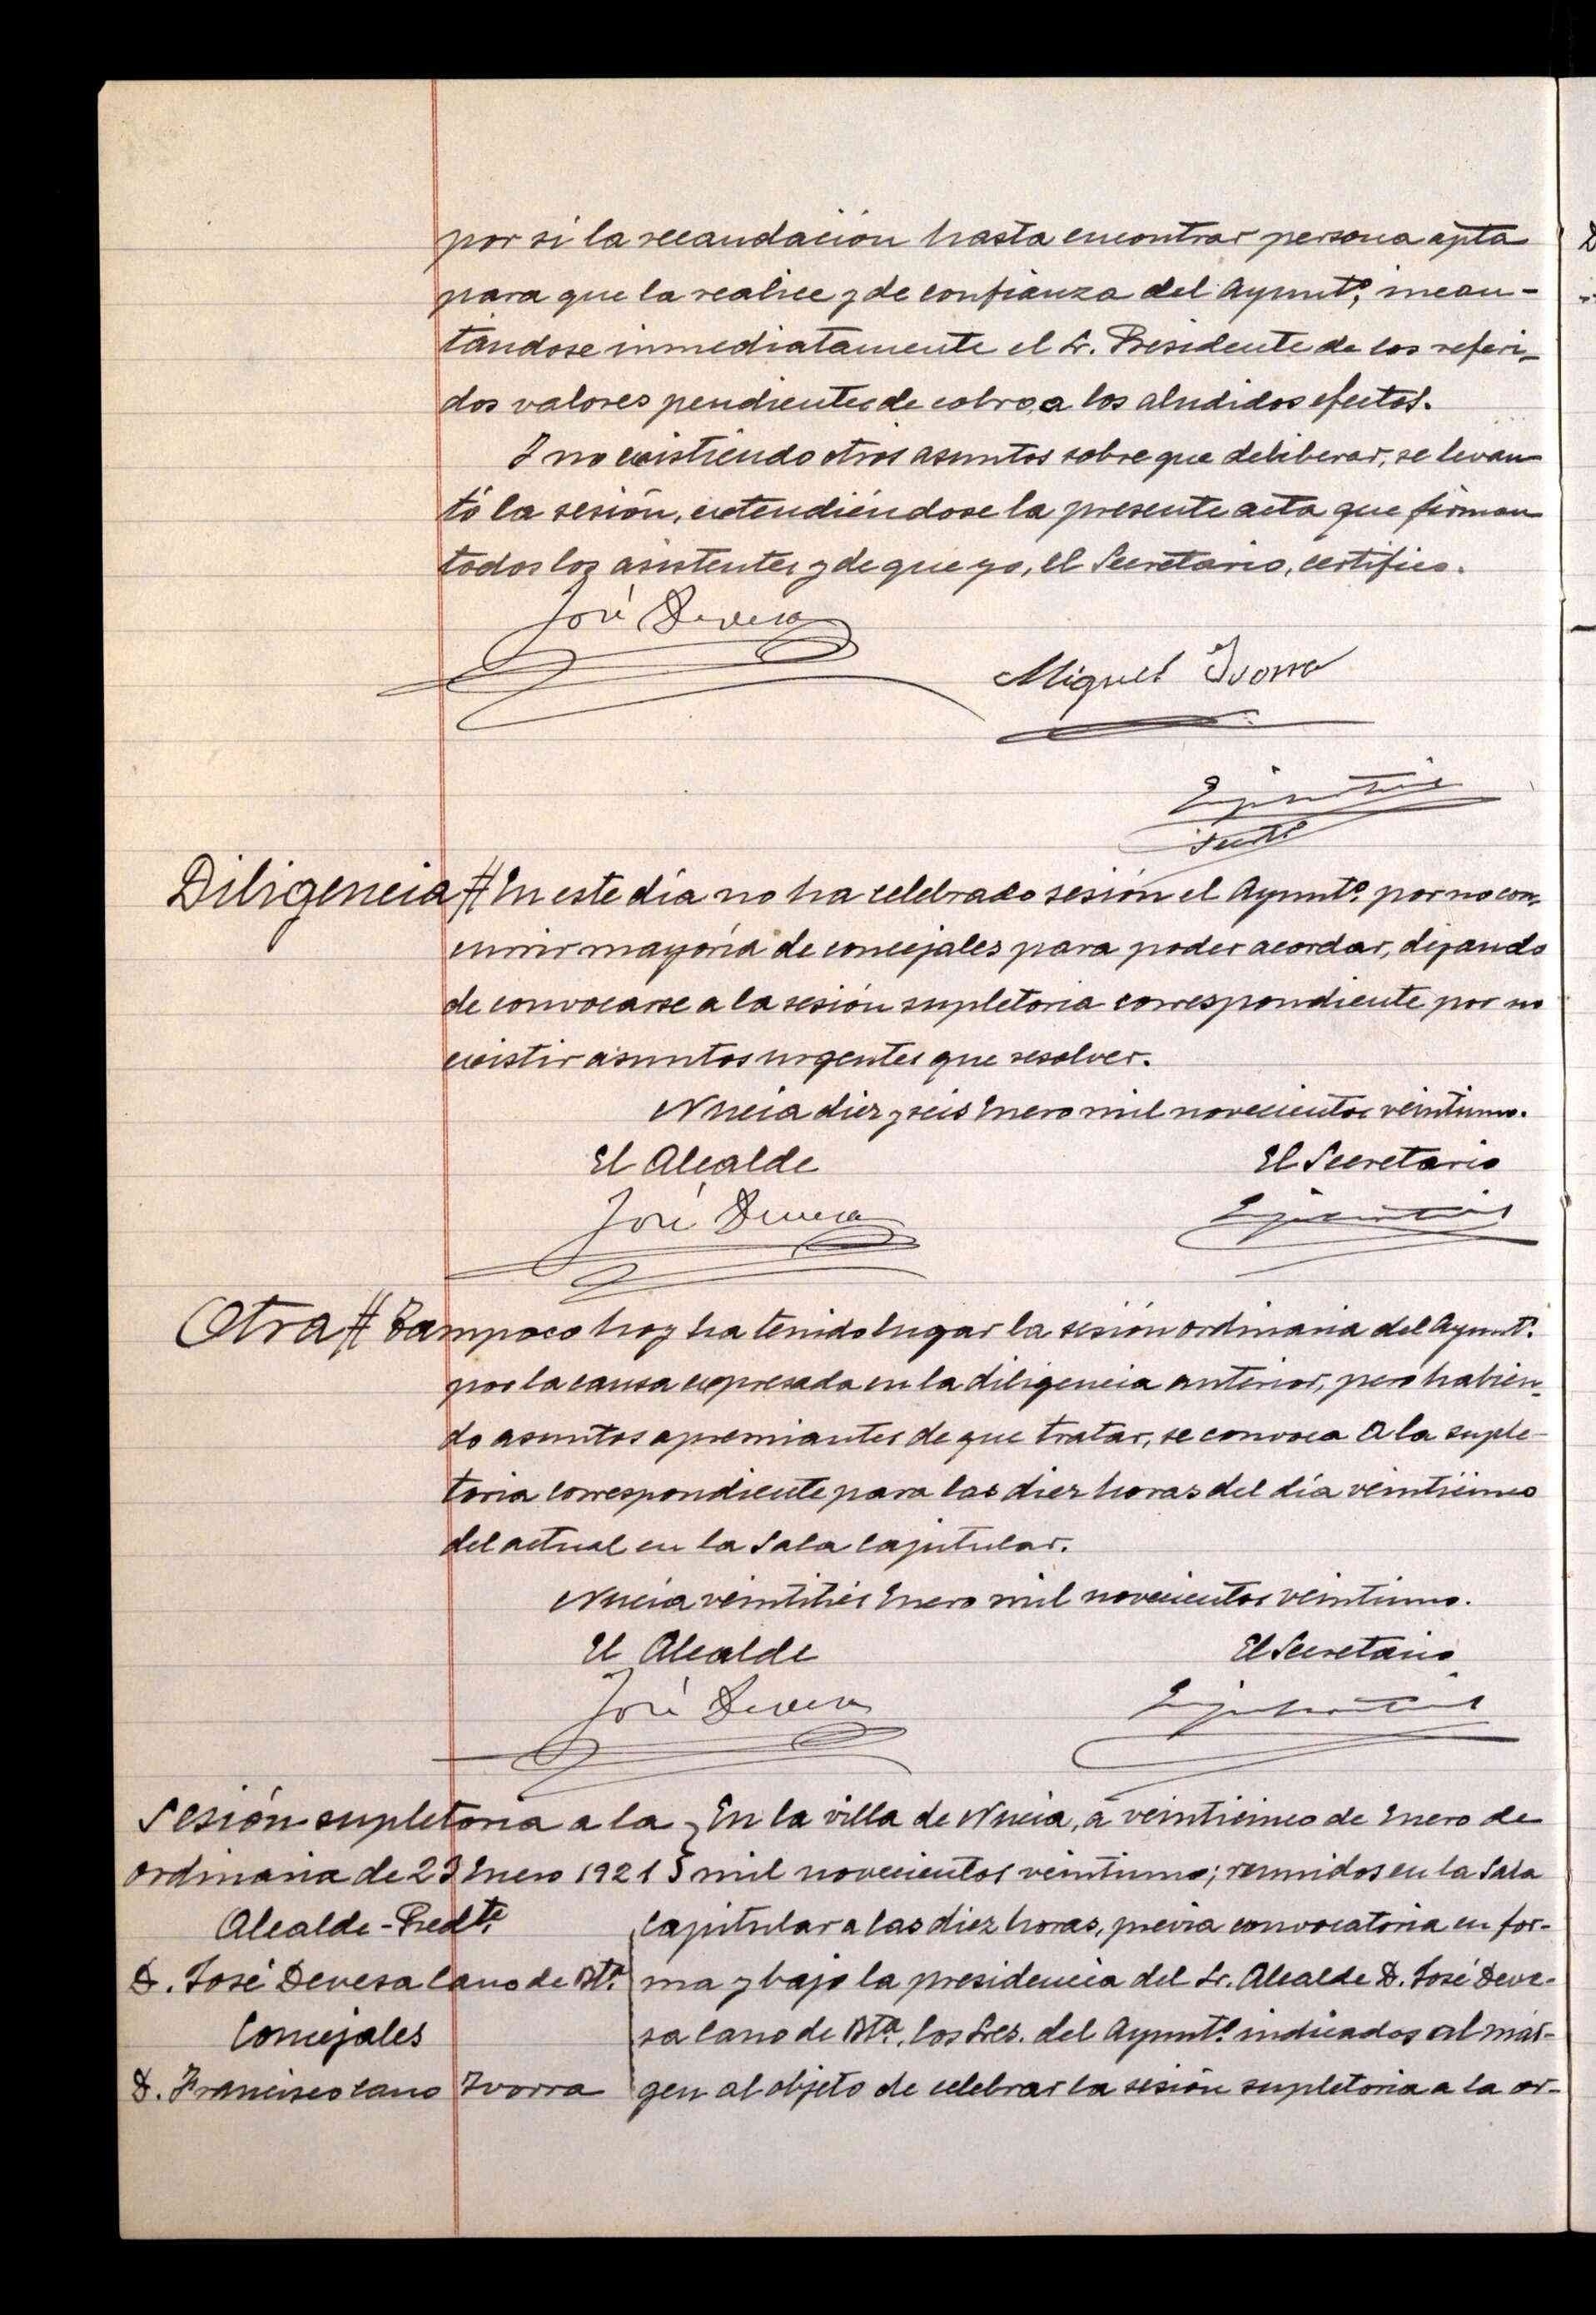 por sí la recaudación hasta encontrar persona apta
para que la realice y de confianza del Ayuntº, incau-
tándose inmediatamente el Sr. Presidente de los referi-
dos valores pendientes de cobro, a los aludidos efectos.
Y no existiendo otros asuntos sobre que deliberar, se levan-
tó la sesión, extendiéndose la presente acta que firman
todos los asistentes y de que yo, el Secretario, certifico.
José Devesa
Miguel Ivorra
Diligencia # En este día no ha celebrado sesión el Ayuntº. por no con-
currir mayoría de concejales para poder acordar, dejando
de convocarse a la sesión supletoria correspondiente por no
existir asuntos urgentes que resolver.
Nucia diez y seis Enero mil novecientos veintiuno.
El Alcalde
El Secretario
José Devesa
Otra # Tampoco hoy ha tenido lugar la sesión ordinaria del Ayuntº.
por la causa expresada en la diligencia anterior, pero habien-
do asuntos apremiantes de que tratar, se convoca a la suple-
toria correspondiente para las diez horas del día veinticinco
del actual en la Sala Capitular.
Nucia veintitrés Enero mil novecientos veintiuno.
El Alcalde
El Secretario
José Devesa
Sesión supletoria a la
ordinaria de 23 Enero 1921
Alcalde-Predte.
D. José Devesa Cano de Bta.
Concejales
D. Francisco Cano Ivorra
En la villa de Nucia, á veinticinco de Enero de
mil novecientos veintiuno; reunidos en la Sala
Capitular a las diez horas, previa convocatoria en for-
ma y bajo la presidencia del Sr. Alcalde D. José Deve-
sa Cano de Bta., los Sres. del Ayuntº. indicados al már-
gen al objeto de celebrar la sesión supletoria a la or-